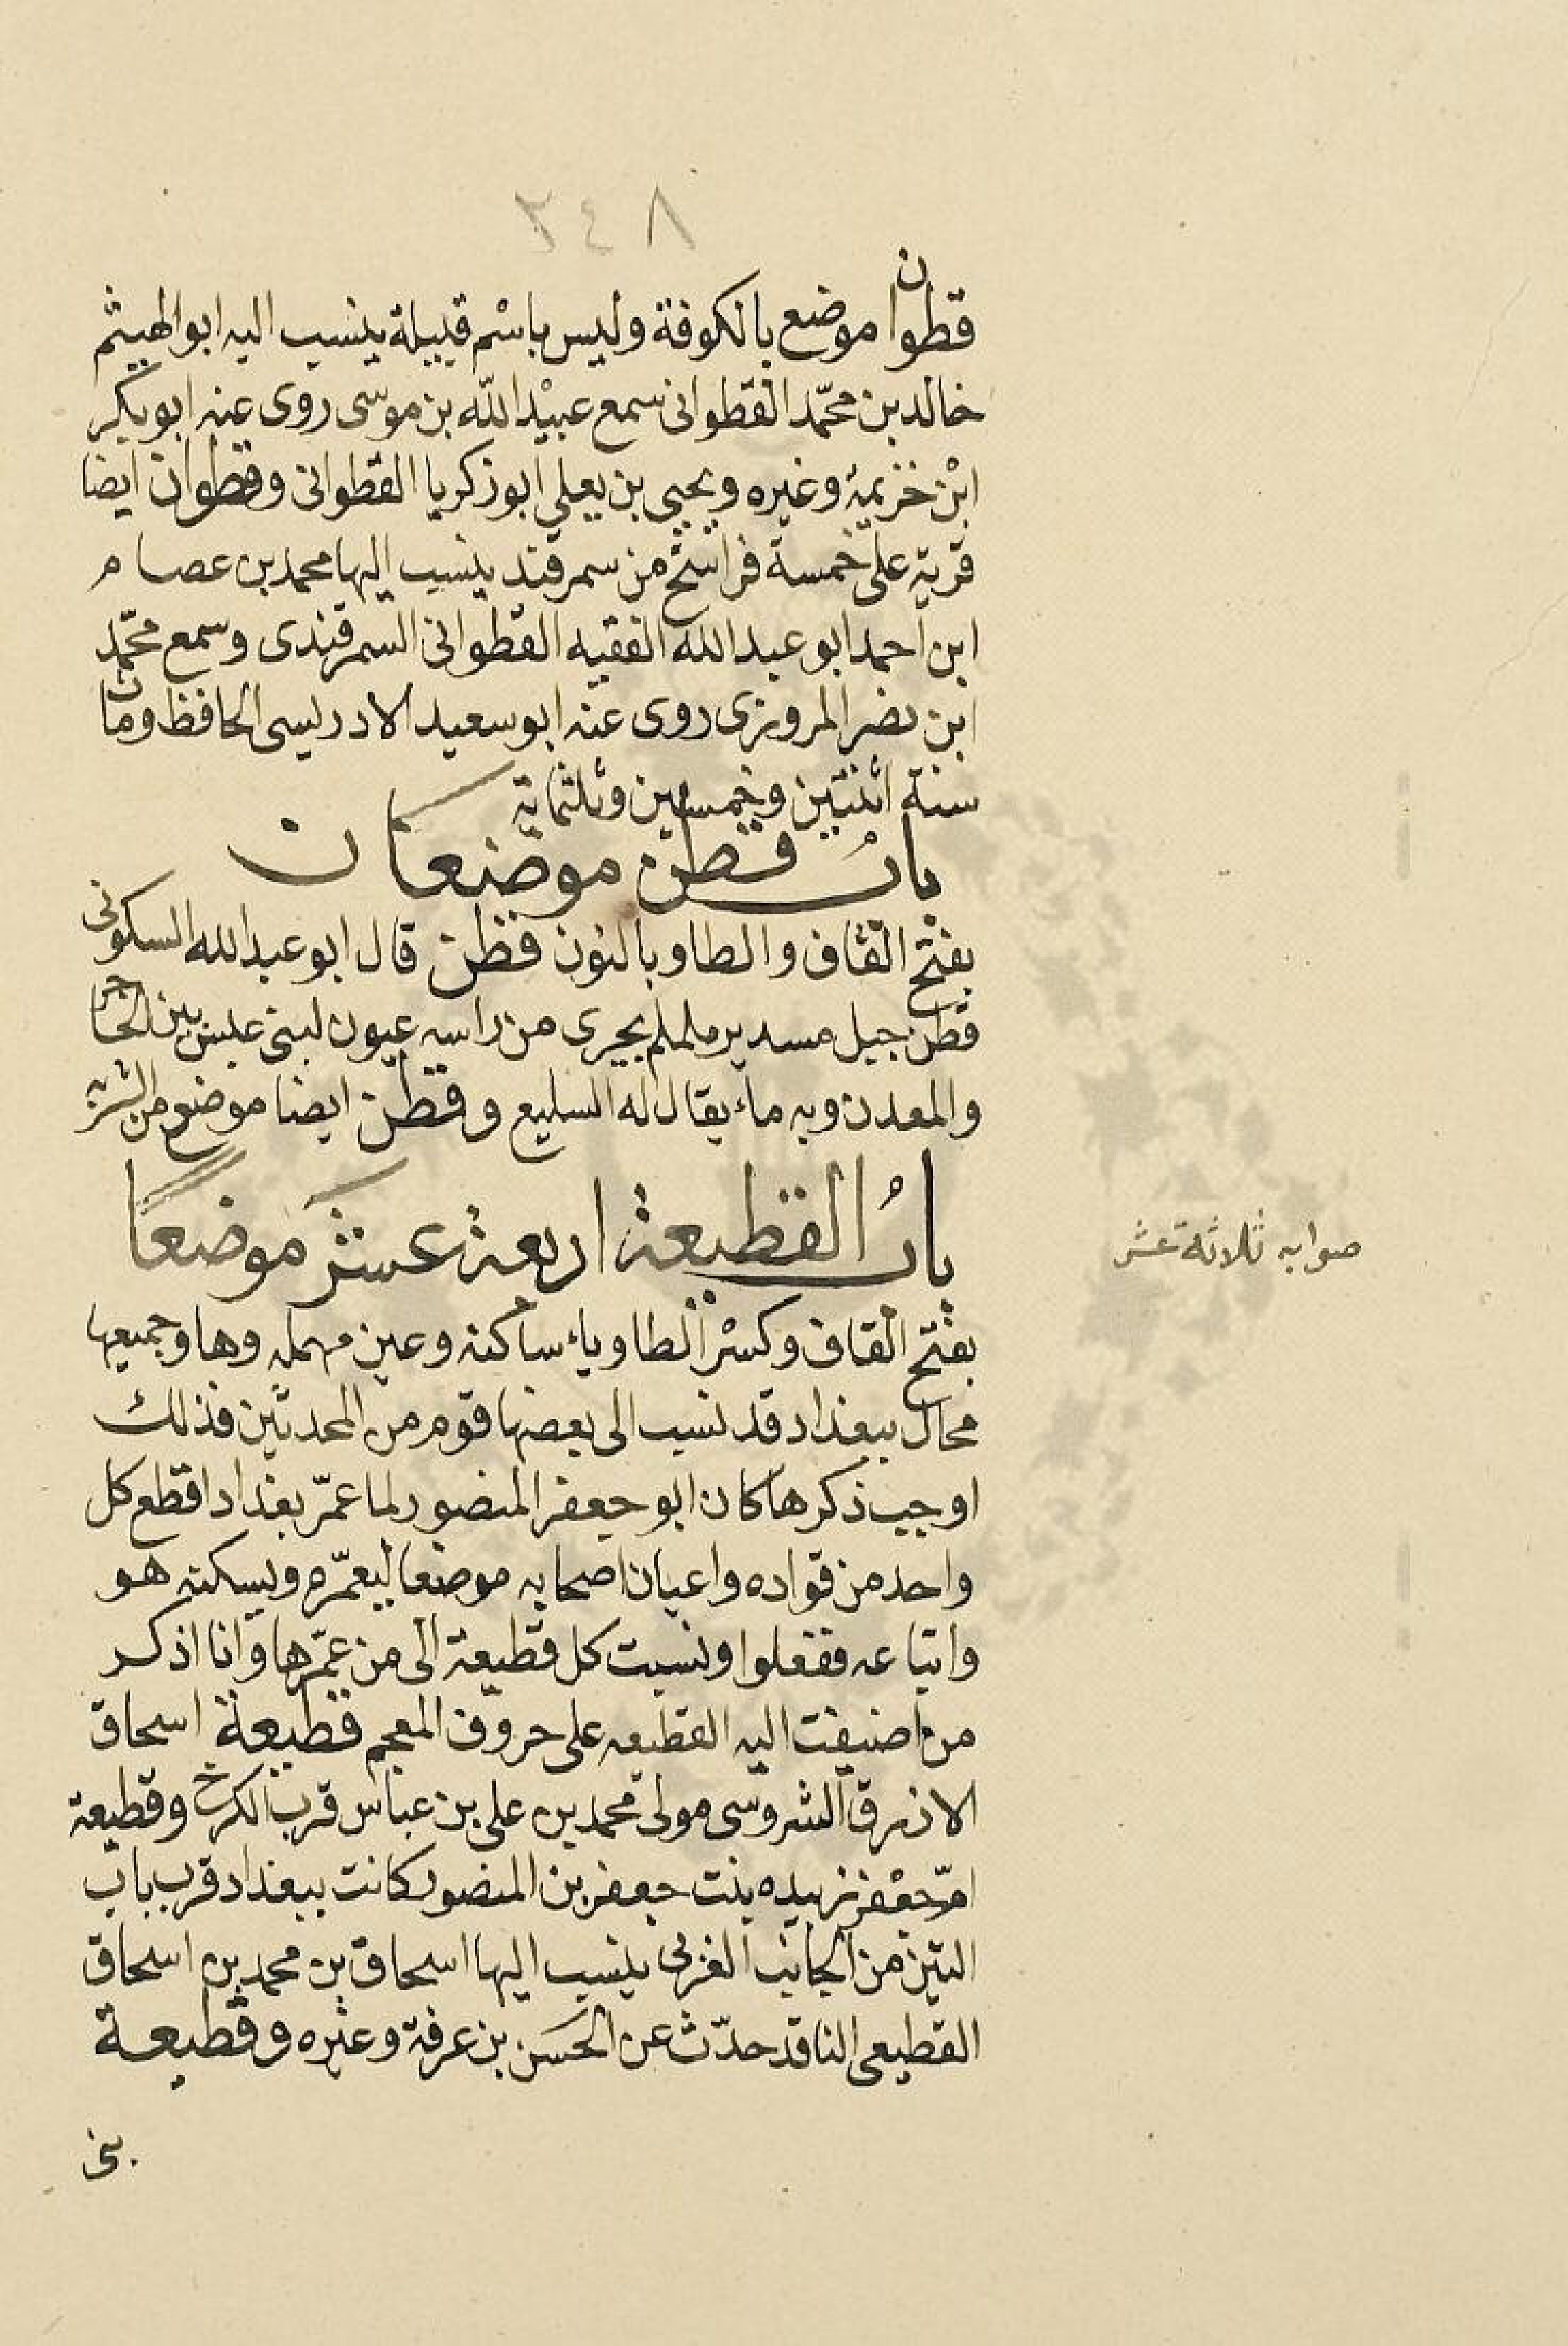 ٢٤٨
قطوان موضع بالكوفة وليس باسْم قبيلة ينسب اليه ابو الهيثم
خالد بن محمّد القطوانى سمع عبيْد الله بن موسى روى عنه ابو بكر
ابْن خزيمة وغيره ويحيى بن يعلي ابو زكريا القطوانى وقطوان ايضا
قرية على خمسة فراسخ من سمرقند ينسب اليها محمد بن عصام
ابن احمد ابو عبد الله الفقيه القطوانى السمرقندى وسمع محمّد
ابن نصر المروزى روى عنه ابو سعيد الادريسى الحافظ ومات
سنة اثنتين وخمسين وثلثماية
بابُ قطن موضعان
بفتح القاف والطا وبالنون قطن قال ابو عبد الله السكونى
قطن جبل مسدير ململم يجرى من راسه عيون لبنى عبس بين الحاجر
والمعدن وبه ماء يقال له السليع وقطن ايضا موضع من الشربة
بابُ القطيعة اربعة عشر موضعًا
صوابه ثلاثة عشر
بفتح القاف وكسْر الطا وياء ساكنه وعين مهمله وها وجميعها
محال ببغداد قد نسب الى بعضها قوم من المحدثين فذلك
اوجب ذكرها كان ابو جعفر المنصور لما عمّر بغداد اقطع كل
واحد من قواده واعيان اصحابه موضعا ليعمّره ويسكنه هو
واتباعه ففعلوا ونسبت كل قطيعة الى من عمّرها وانا اذكر
من اضيفت اليه القطيعه على حروف المعجم قطيعة اسحاق
الازرق الشروسى مولى محمد بن على بن عباس قرب الكرخ وقطيعة
امّ جعْفر زبيده بنت جعفر بن المنصور كانت ببغداد قرب باب
التين من الجانب الغربى ينسب اليها اسحاق بن محمد بن اسحاق
القطيعى الناقد حدّث عن الحسَن بن عرفة وغيره وقطيعة
بنى